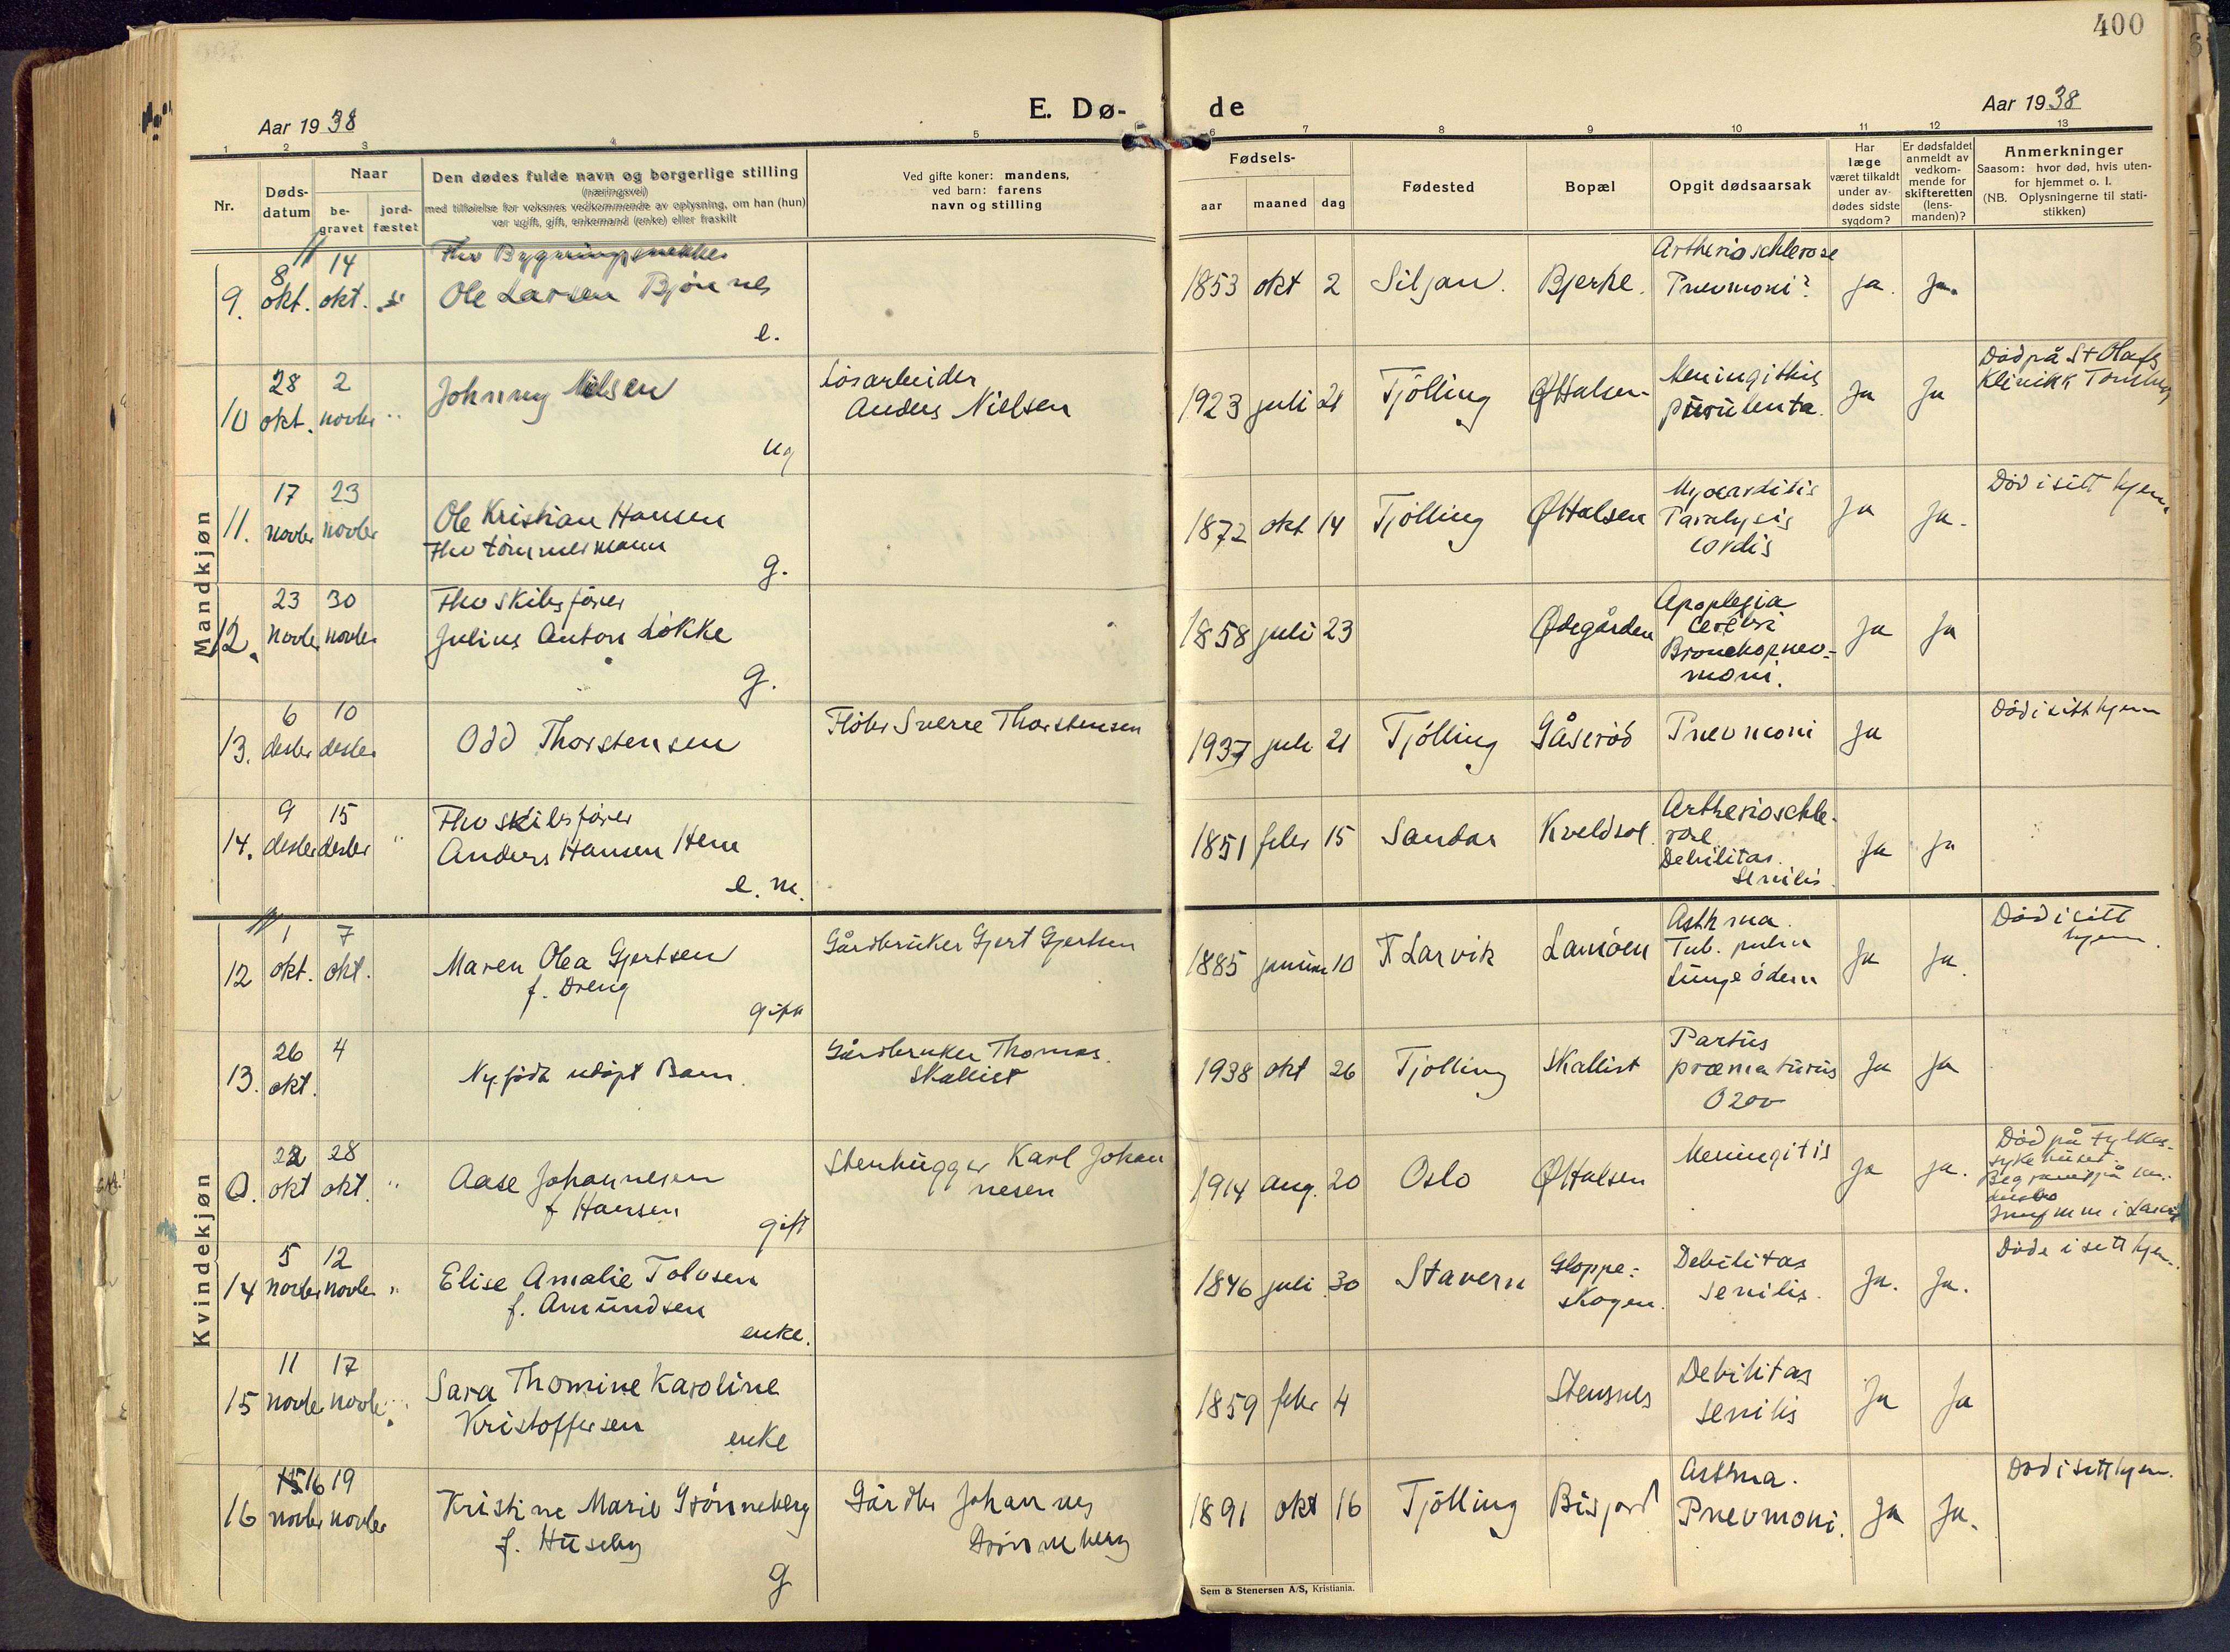 400
Aar 1938
E. Dø-
de
Aar 1938
1 2 3 4 5 6 7 8 9 10 11 12 13
Nr.
Døds-
datum
Naar
be-
gravet
jord-
fæstet
Den dødes fulde navn og borgerlige stilling
(næringsvei)
med tilføielse for voksnes vedkommende av oplysning, om han (hun)
var ugift, gift, enkemand (enke) eller fraskilt
Ved gifte koner: mandens,
ved barn: farens
navn og stilling
Fødsels-
aar maaned dag
Fødested
Bopæl
Opgit dødsaarsak
Har
læge
været tilkaldt
under av-
dødes sidste
sygdom?
Er dødsfaldet
anmeldt av
vedkom-
mende for
skifteretten
(lens-
manden)?
Anmerkninger
Saasom: hvor død, hvis uten-
for hjemmet o. l.
(NB. Oplysningerne til stati-
stikken)
Mandkjøn
9. 8 okt. 14 okt.
Ole Larsen Bjønnes
e.
1853 okt 2 Siljan. Bjerke.
Artherioschlerose
Pnevmoni?
ja. Ja.
10 28 okt. 2 novbr "
Johnny Nielsen
ug
Løsarbeider
Anders Nielsen
1923 juli 21 Tjölling Ø Halsen
Meningithis
purulenta.
Ja Ja
Död på St Olafs
Klinikk Tønsberg
11. 17 novbr 23 novbr
Ole Kristian Hansen
Fhv tömmermann
g.
1872 okt 14 Tjölling Ø Halsen
Myocarditis
Paralysis
cordis
Ja Ja.
Död i sitt hjem
12. 23 novbr 30 novbr
Fhv skibsfører
Julius Anton Løkke
g.
1858 juli 23 Ødegården
Apoplexia
cerebri
Bronchopnev-
moni.
Ja Ja
13. 6 desbr 10 desbr
Odd Thorstensen
Fløter Sverre Thorstensen
1937 juli 21 Tjölling Gåserød Pnevmoni Ja
Död i sitt hjem
14. 9 desbr 15 desbr "
Fhv skibsfører
Anders Hansen Hem
e. m.
1851 febr 15 Sandar Kveldsol
Artherioschle-
rose
Debilitas
senilis.
Ja Ja
Kvindekjøn
12 1 okt. 7 okt.
Maren Olea Gjertsen
f. Dreng
gift
Gårdbruker Gjert Gjertsen
1885 januar 10 Larvik Lamøen
Asthma.
Tub. pulm
Lungeödem
Ja Ja.
Död i sitt
hjem.
13. 26 okt. 4
Nyfödt udöpt Barn.
Gårdbruker Thomas.
Skallist
1938 okt 26 Tjölling Skallist
Partus
præmaturus
Ja Ja
0. 22 okt 28 okt. "
Aase Johannesen
f Hansen
gift
Stenhugger Karl Johan
nesen
1914 aug. 20 Oslo Ø Halsen Meningitis Ja Ja.
Död på Fylkes-
sykehuset.
14 5 novbr 12 novbr "
Elise Amalie Tolvsen
f. Amundsen
enke.
1846 juli 30 Stavern
Gloppe-
skogen.
Debilitas
senilis.
Ja. Ja.
Döde i sitt hjem.
15 11 novbr 17 novbr
Sara Thomine Karoline
Kristoffersen
enke
1859 febr 4 Stensnes
Debilitas
senilis
Ja Ja
16 16 novbr 19 novbr
Kristine Marie Grönneberg
f. Huseby
g
Gårdbr Johannes
Grönneberg
1891 okt 16 Tjölling Bisjord
Asthma.
Pnevmoni.
Ja Ja.
Död i sitt hjem.
Sem & Stenersen A/S, Kristiania.